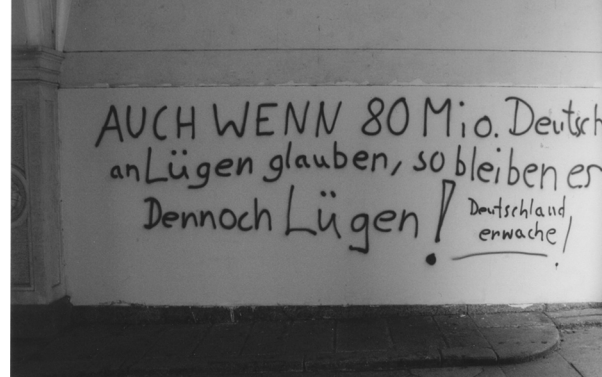 AUCH WENN 80 Mio. Deutsch
an Lügen glauben, so bleiben es
Dennoch Lügen!
Deutschland
erwache!